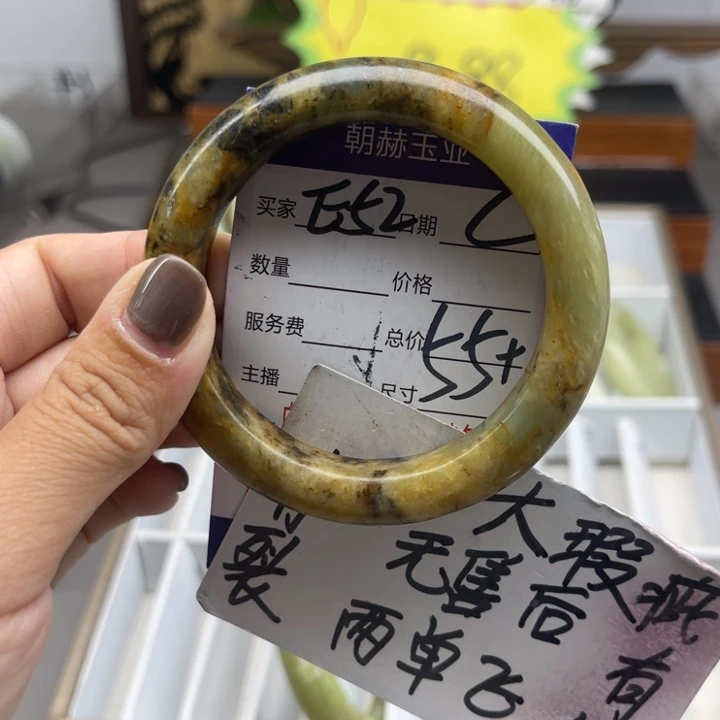 朝赫玉业
买家 E52 日期
数量 价格
服务费 总价
主播 尺寸 55+
大瑕疵
有
裂
无售后
两单飞